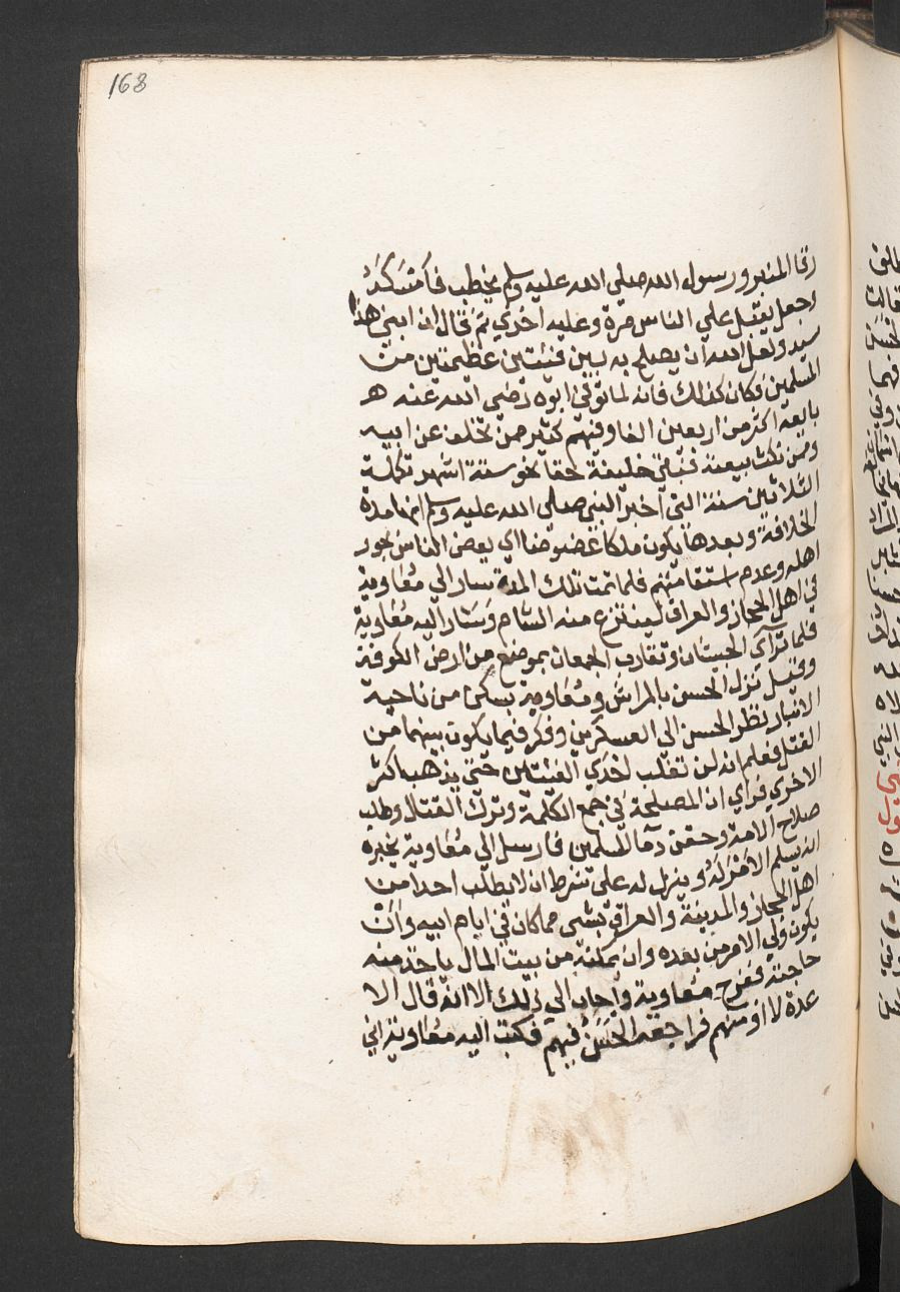 168
رقا المنبر ورسول الله صلى الله عليه وسلم يخطب فامتسكه
وجعل يقبل علي الناس مرة وعليه اخري ثم قال ان ابني هذا
سيد ولعل الله ان يصلح به بين فئتين عظيمتين من
المسلمين فكان كذلك فانه لما توفي ابوه رضي الله عنه هـ
بايعه اكثر من اربعين الفا وفيهم كثير ممن تخلف عن ابيه
وممن نكث بيعته فبقي خليفة حقا نحو ستة اشهر تكملة
الثلاثين سنة التي اخبر النبي صلى الله عليه وسلم انها مدة
الخلافة وبعدها يكون ملكا عضوضا اي يعض الناس بجور
اهله وعدم استقامتهم فلما تمت تلك المدة سار الي معاوية
في اهل الحجاز والعراق لينتزع منه الشام وسار اليه معاوية
فلما تراي الجيشان وتقارب الجمعان بموضع من ارض الكوفة
وقيل نزل الحسن بالمراش ومعاوية بسكن من ناحية
الانبار نظر الحسن الي العسكرين وفكر فيما يكون بينهما من
القتل فعلم انه لن تغلب احدي الفئتين حتي يذهب اكثر
الاخري فراي ان المصلحة في جمع الكلمة وترك القتال وطلب
صلاح الامة وحقن دما المسلمين فارسل الي معاوية يخبره
انه يسلم الامر له وينزل له علي شرط ان لا يطلب احدا من
اهل الحجاز والمدينة والعراق بشي مما كان في ايام ابيه وان
يكون ولي الامر من بعده وان يمكنه من بيت المال ياخذ منه
حاجته ففرح معاوية واجاب الي ذلك الا انه قال الا
عدة لا اومنهم فراجعه الحسن فيهم فكتب اليه معاوية اني